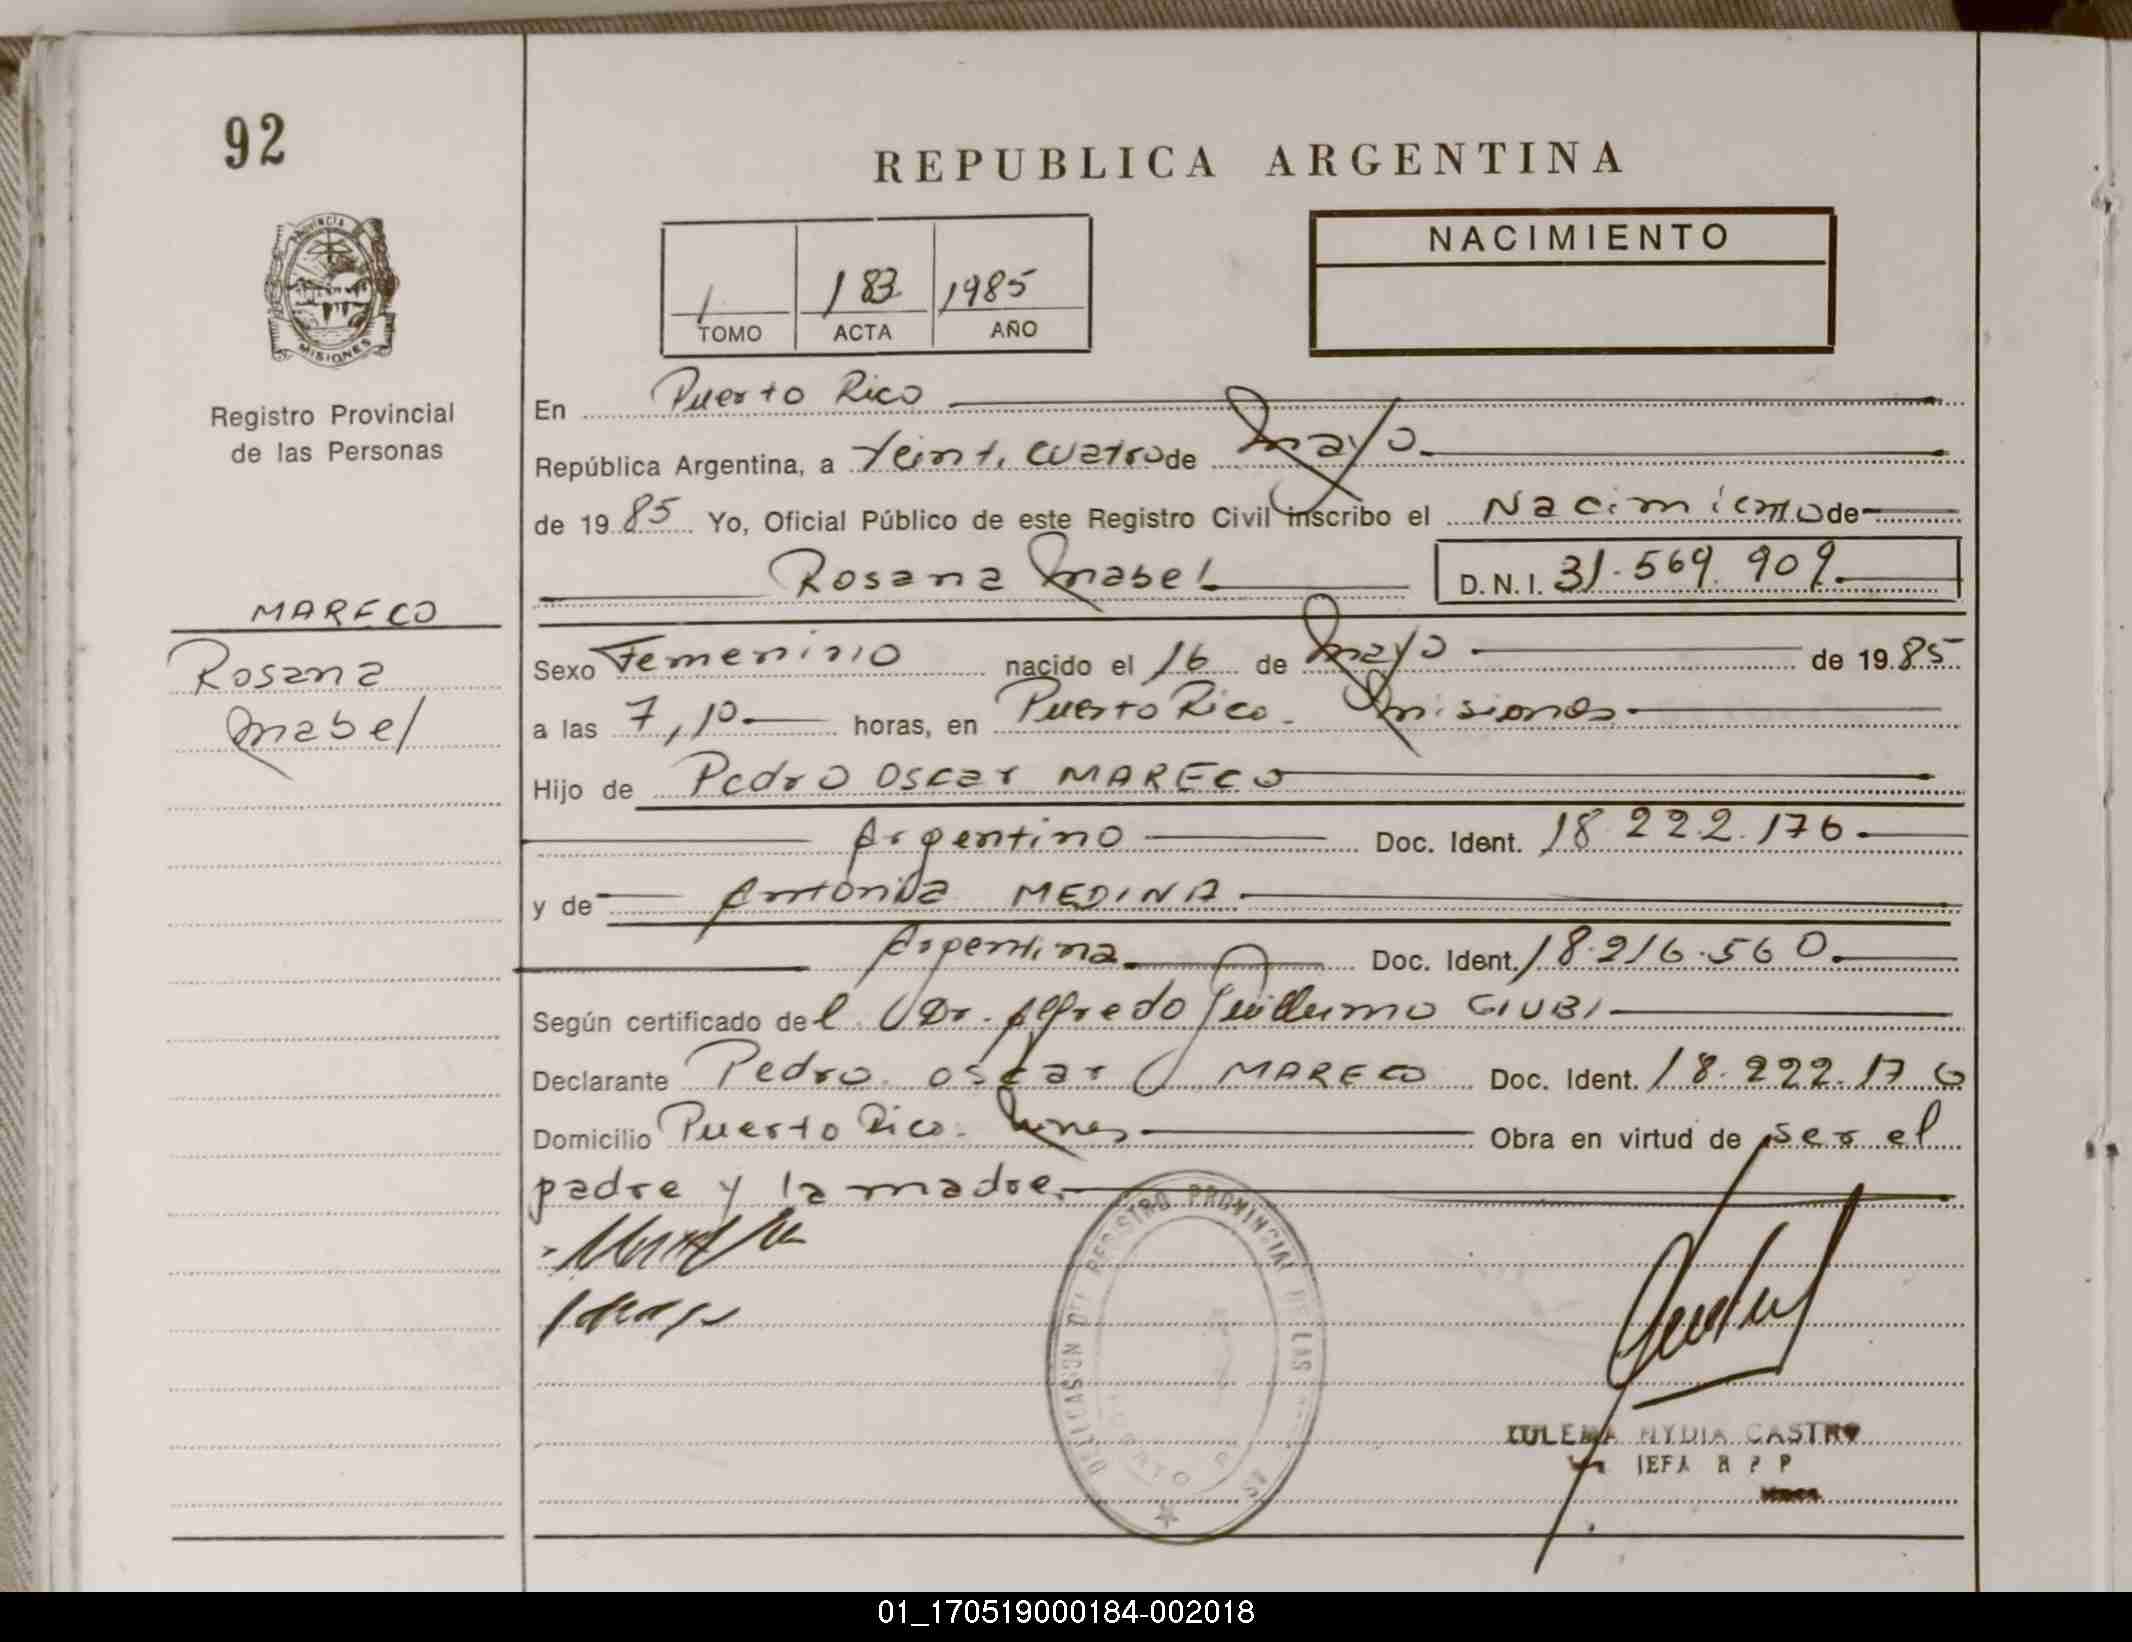 92
REPUBLICA ARGENTINA
PROVINCIA
MISIONES
1 183 1985
TOMO ACTA AÑO
NACIMIENTO
Registro Provincial
de las Personas
MARECO
Rosana
Mabel
En Puerto Rico
República Argentina, a Veinti cuatro de Mayo
de 1985 Yo, Oficial Público de este Registro Civil inscribo el Nacimiento de
Rosana Mabel D.N.I. 31.569.909
Sexo Femenino nacido el 16 de Mayo de 1985
a las 7,10 horas, en Puerto Rico - Misiones
Hijo de Pedro Oscar MARECO
Argentino Doc. Ident. 18.222.176
y de Antonia MEDINA
Argentina Doc. Ident. 18.216.560
Según certificado del Dr. Alfredo Guillermo GIUBI
Declarante Pedro Oscar MARECO Doc. Ident. 18.222.176
Domicilio Puerto Rico - Mnes Obra en virtud de ser el
padre y la madre.
DELEGASION DEL REGISTRO PROVINCIAL DE LAS
PUERTO
ZULEMA NYDIA CASTRO
JEFA R P P
01_170519000184-002018